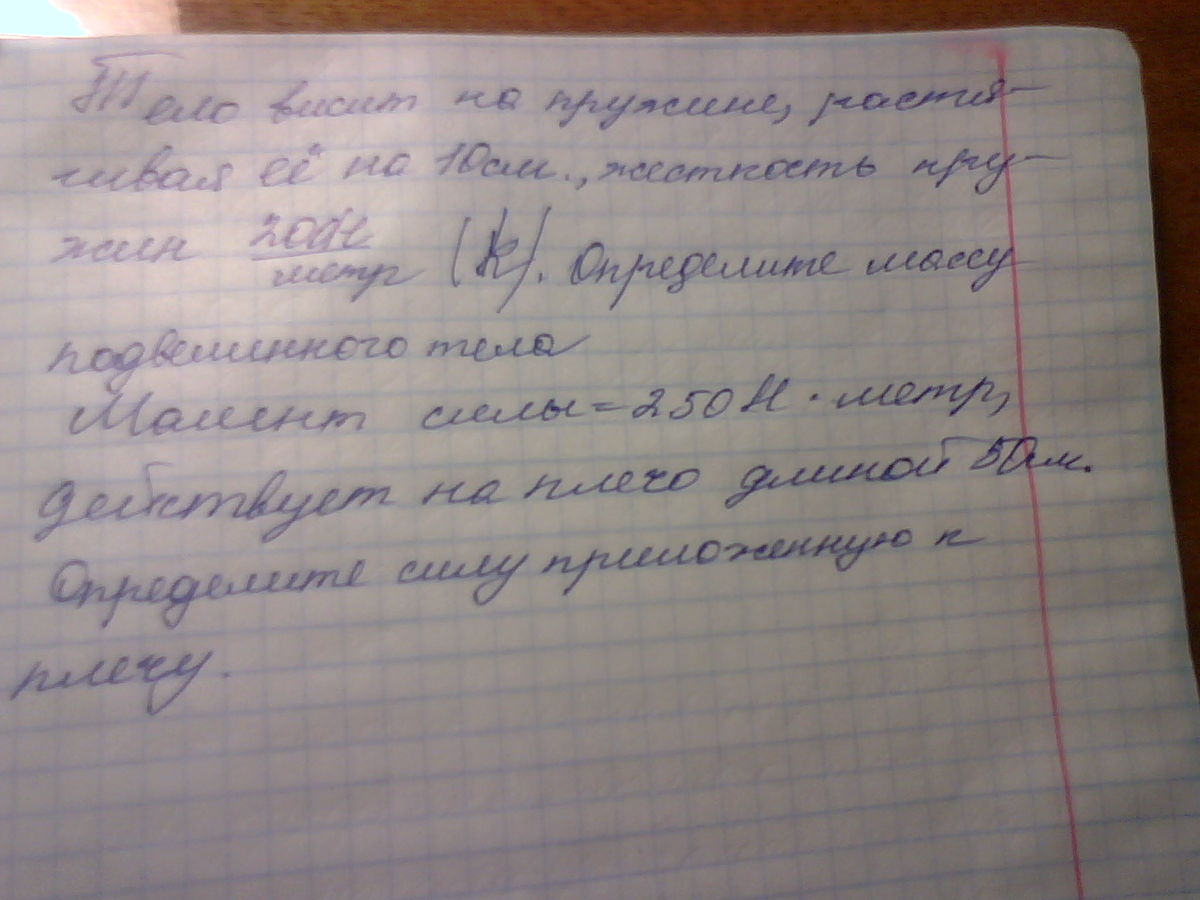 Тело висит на пружине, растя-
гивая её на 10см., жесткость пру-
жин 200Н/метр (k). Определите массу
подвешенного тела
Момент силы = 250 Н · метр,
действует на плечо длиной 50см.
Определите силу приложенную к
плечу.